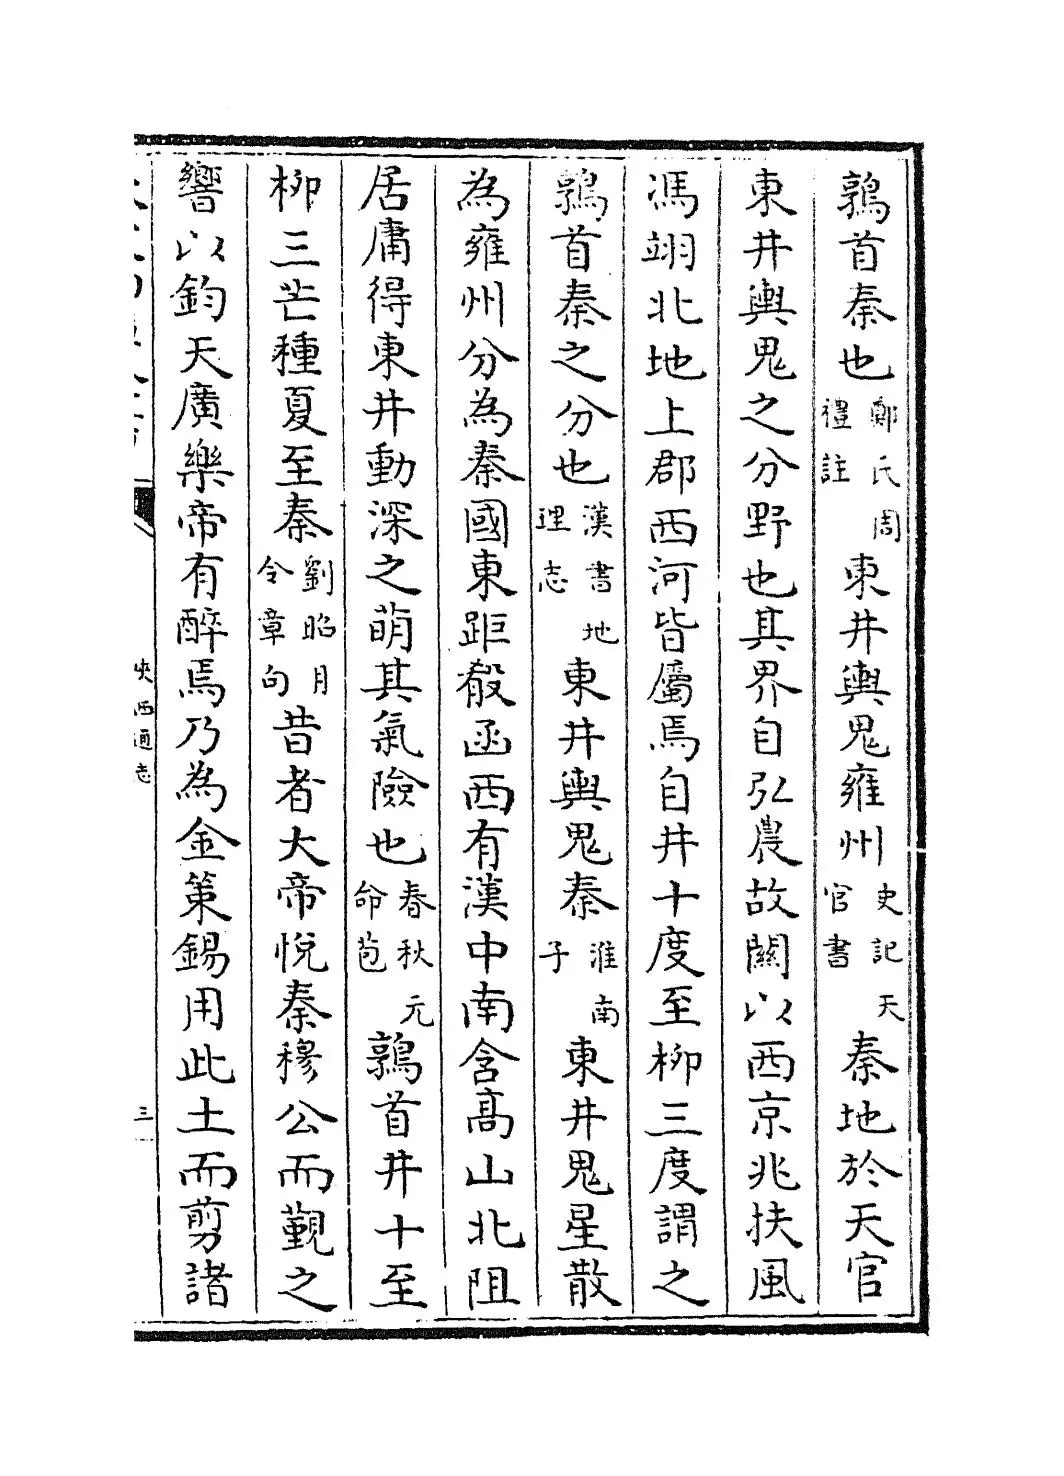 鶉首秦也鄭氏周禮註東井輿鬼雍州史記天官書秦地於天官
東井輿鬼之分野也其界自弘農故關以西京兆扶風
馮翊北地上郡西河皆屬焉自井十度至柳三度謂之
鶉首秦之分也漢書地理志東井輿鬼秦淮南子東井鬼星散
為雍州分為秦國東距殽函西有漢中南含高山北阻
居庸得東井動深之萌其氣險也春秋元命苞鶉首井十至
柳三芒種夏至秦劉昭月令章句昔者大帝悅秦穆公而觀之
響以鈞天廣樂帝有醉焉乃為金策錫用此土而剪諸
陜西通志
三